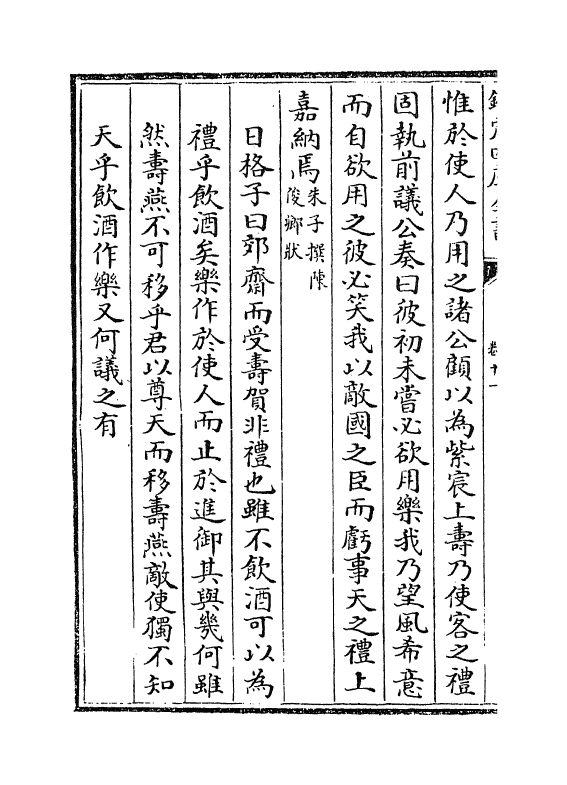 惟於使人乃用之諸公顧以為紫宸上壽乃使客之禮
固執前議公奏曰彼初未嘗必欲用樂我乃望風希意
而自欲用之彼必笑我以敵國之臣而虧事天之禮上
嘉納焉朱子撰陳俊卿狀
日格子曰郊齋而受壽賀非禮也雖不飲酒可以為
禮乎飲酒矣樂作於使人而止於進御其與幾何雖
然壽燕不可移乎君以尊天而移壽燕敵使獨不知
天乎飲酒作樂又何議之有